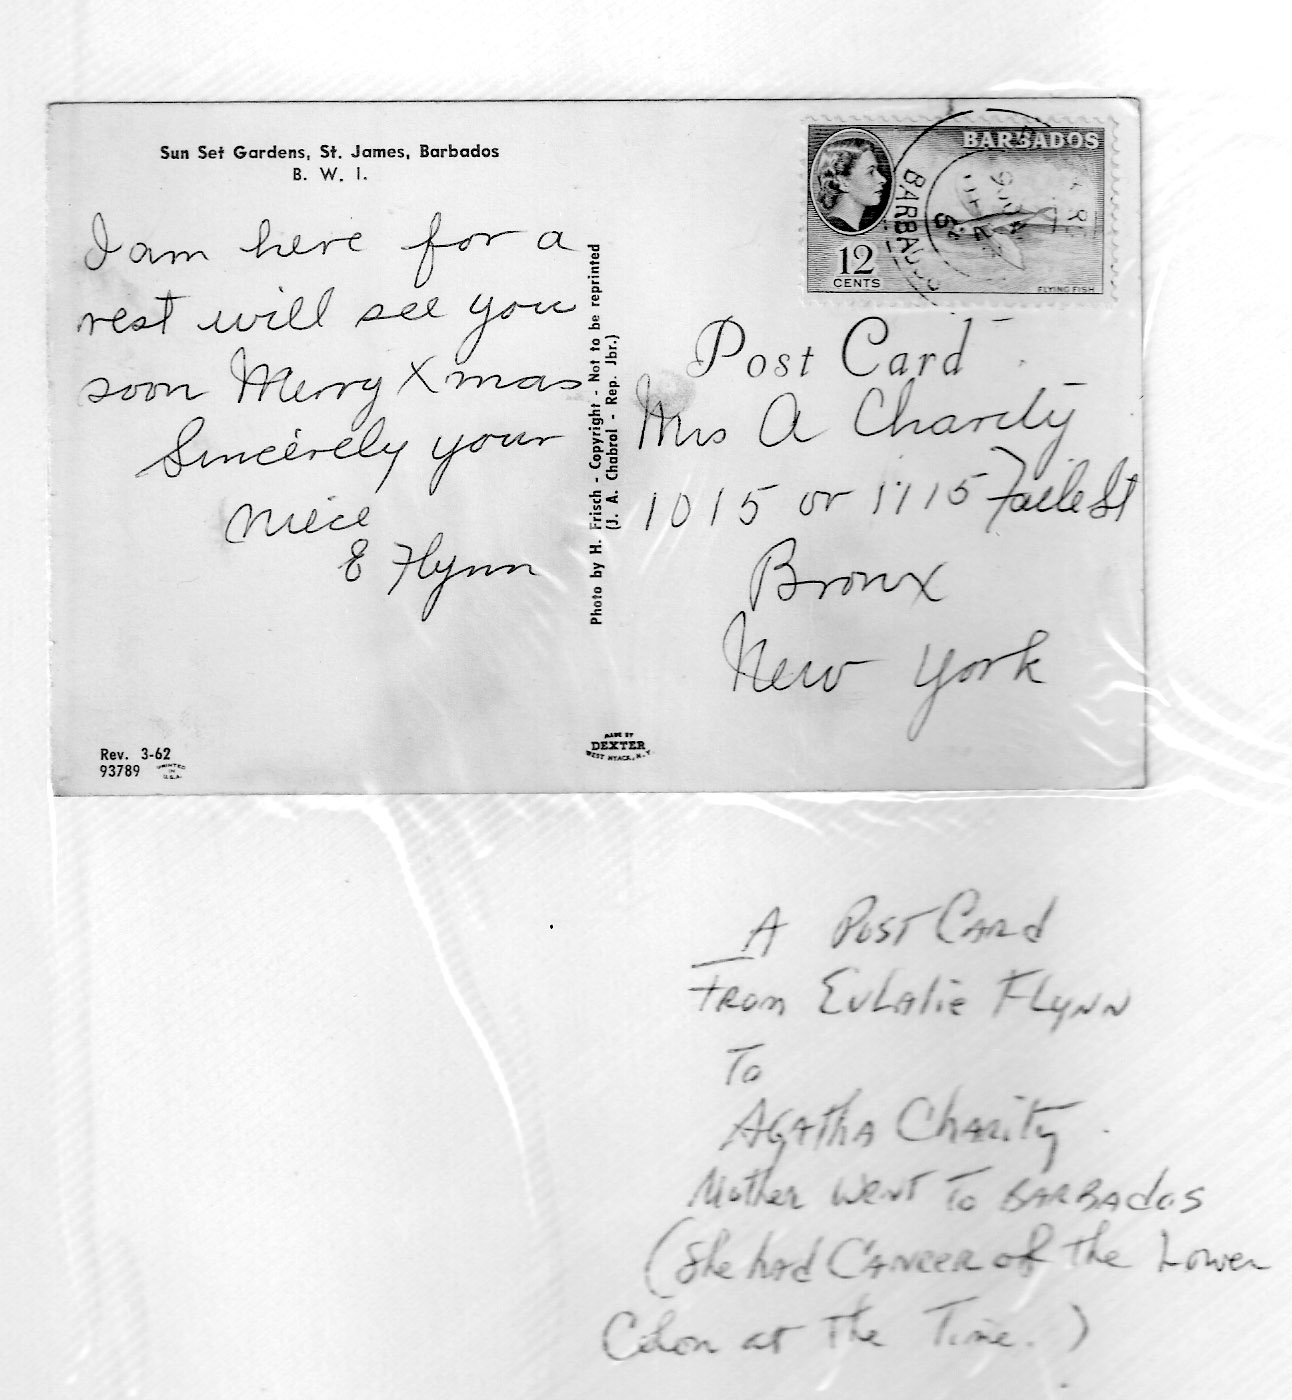 Sun Set Gardens, St. James, Barbados
B. W. I.
I am here for a
rest will see you
soon Merry Xmas
Sincerely your
niece
E Flynn
Rev. 3-62
93789 PRINTED
IN
U.S.A.
Photo by H. Frisch - Copyright - Not to be reprinted
(J. A. Chabrol - Rep. Jbr.)
MADE BY
DEXTER
WEST NYACK, N.Y.
BARBADOS
12
CENTS
FLYING FISH
BARBADOS
Post Card
Mrs A Charity
1015 or 1115 Faile St
Bronx
New York
A Post Card
From Eulalie Flynn
To
Agatha Charity.
Mother went to Barbados
(She had Cancer of the Lower
Colon at the Time.)